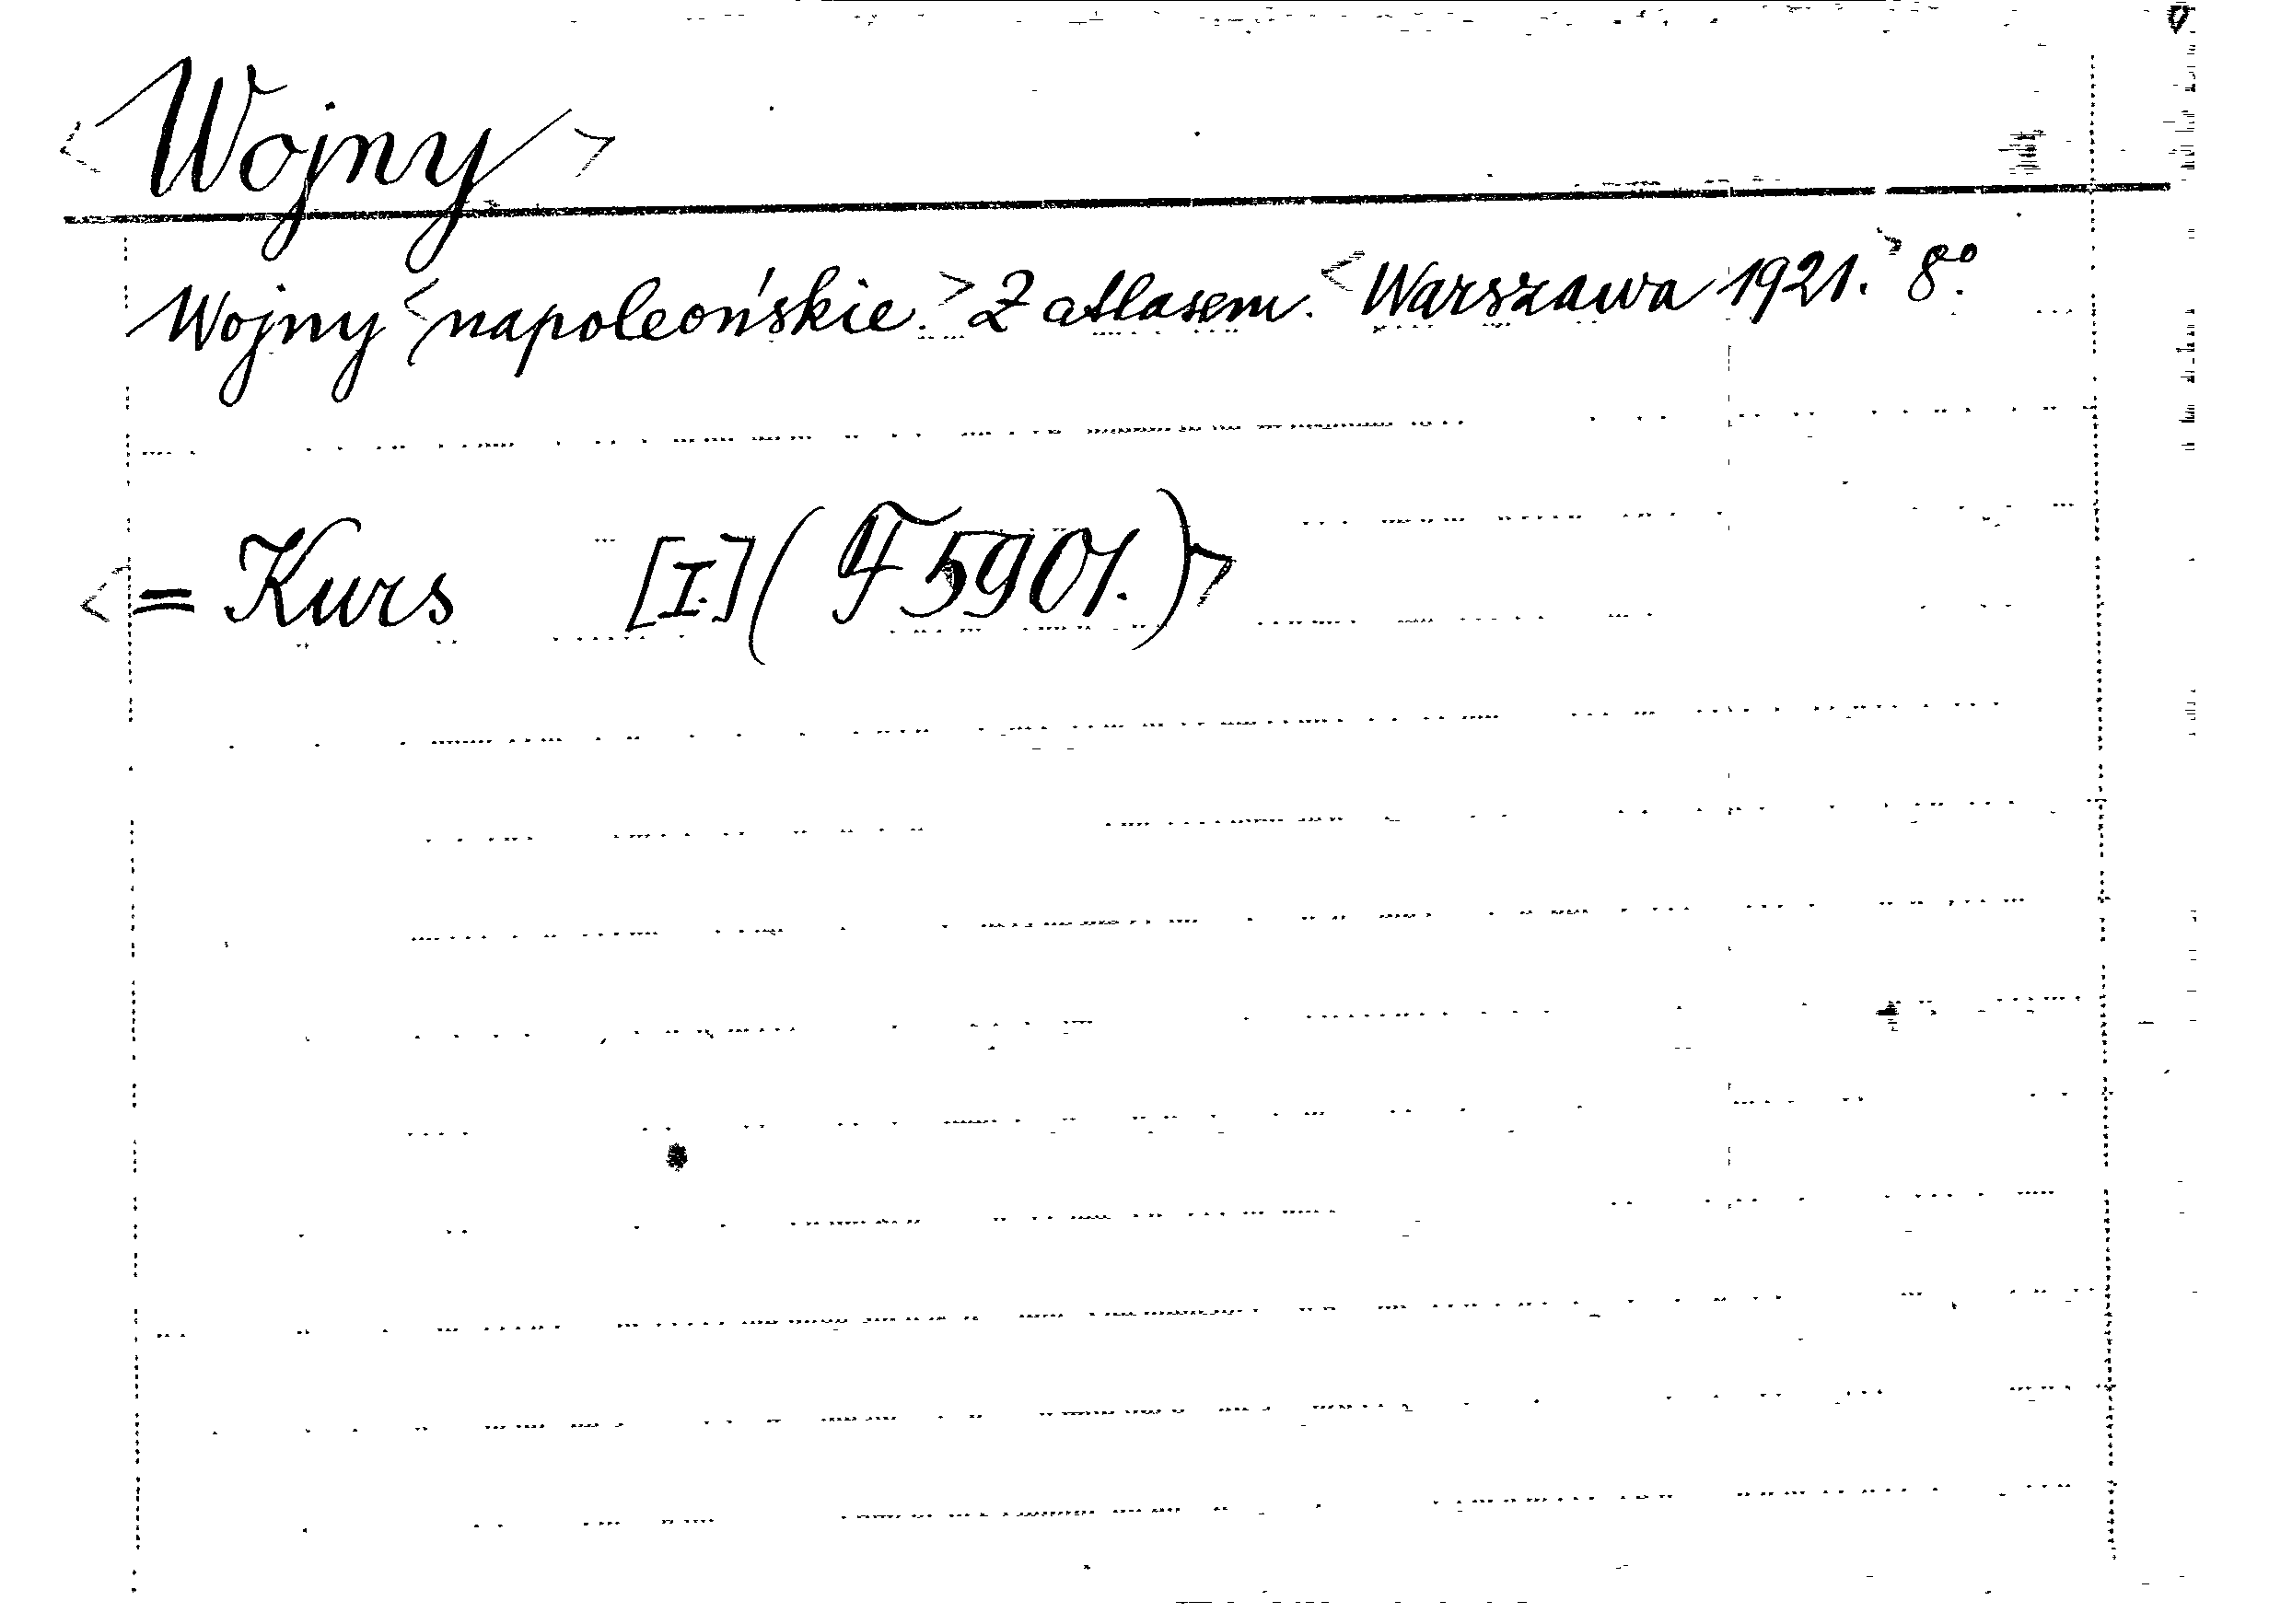 <Wojny>
Wojny <napoleońskie.> Z atlasem. <Warszawa 1921.> 8°.
<= Kurs [I.] (F 5901.)>